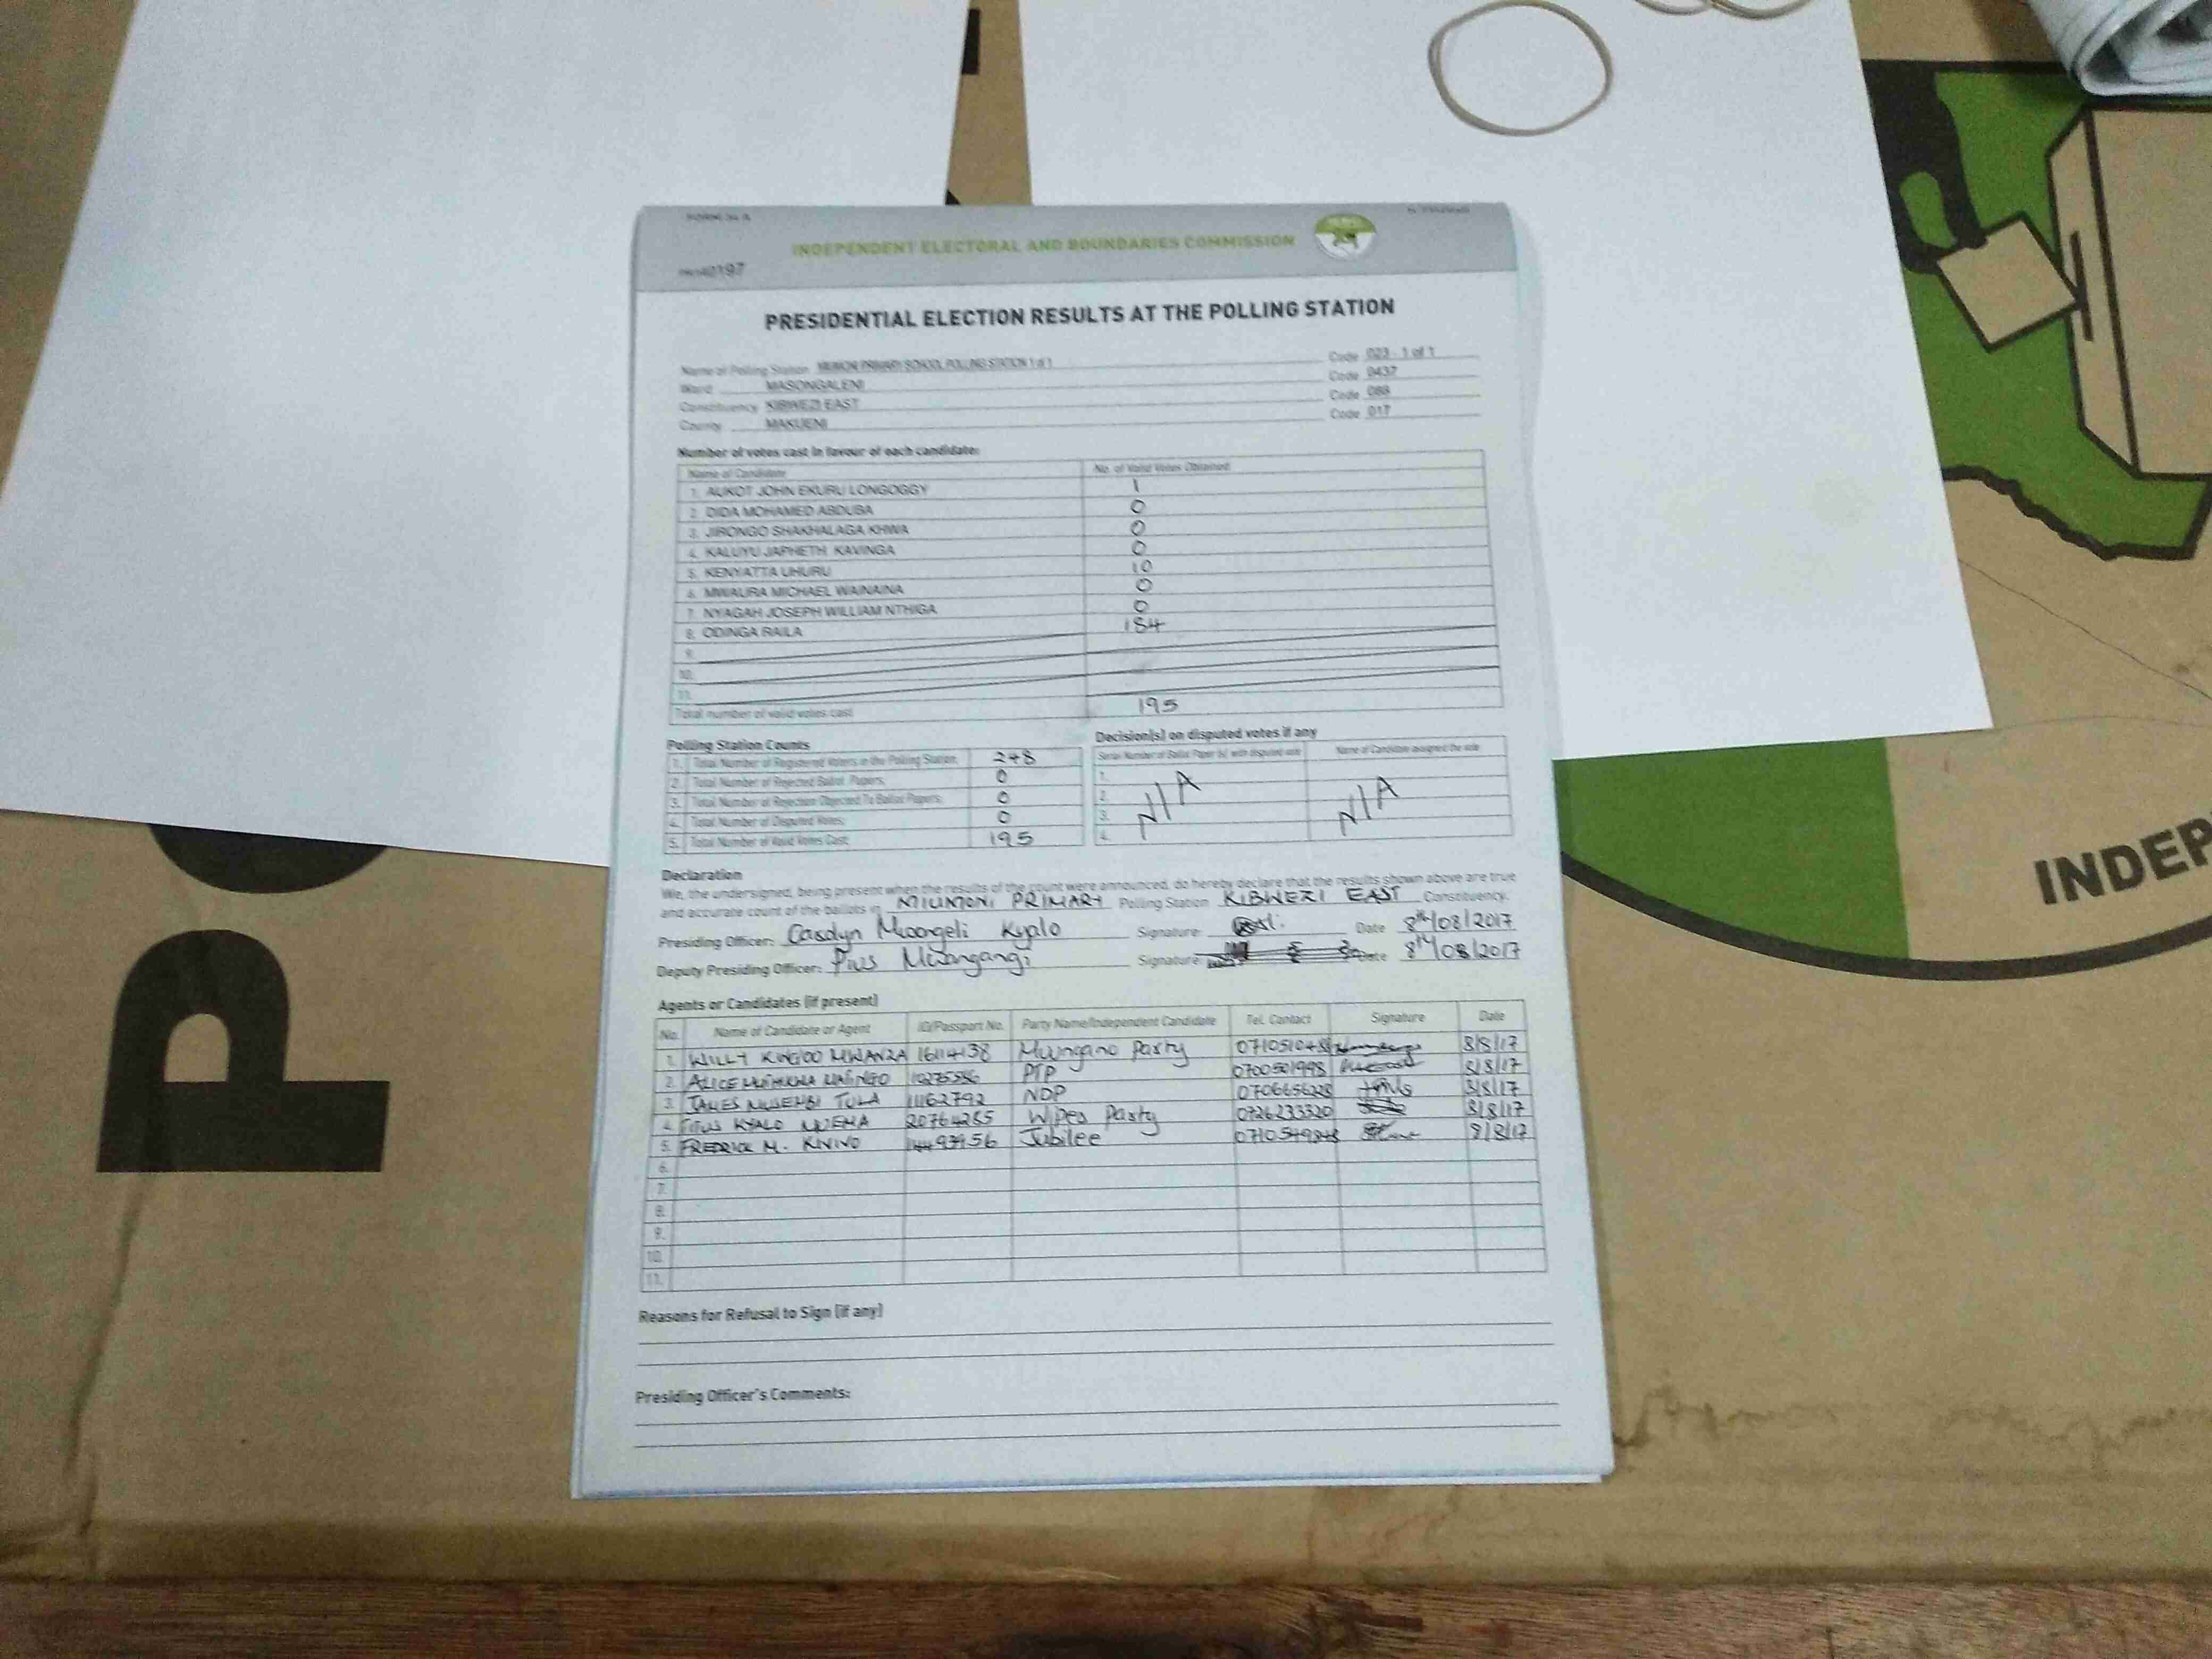 FORM 34 A
INDEPENDENT ELECTORAL AND BOUNDARIES COMMISSION
PRESIDENTIAL ELECTION RESULTS AT THE POLLING STATION
Name of Polling Station PRIMARY SCHOOL POLLING STATION 1 of 1 Code 023 - 1 of 1
Ward MASONGALENI Code 0437
Constituency KIBWEZI EAST Code 088
County MAKUENI Code 017
Number of votes cast in favour of each candidate:
Name of Candidate No. of Valid Votes Obtained
1. AUKOT JOHN EKURU LONGOGGY 1
2. DIDA MOHAMED ABDUBA 0
3. JIRONGO SHAKHALAGA KHWA 0
4. KALUYU JAPHETH KAVINGA 0
5. KENYATTA UHURU 10
6. MWAURA MICHAEL WAINAINA 0
7. NYAGAH JOSEPH WILLIAM NTHIGA 0
8. ODINGA RAILA 184
9.
10.
11.
Total number of valid votes cast 195
Polling Station Counts
1. Total Number of Registered Voters in the Polling Station. 248
2. Total Number of Rejected Ballot Papers. 0
3. Total Number of Rejection Objected To Ballot Papers. 0
4. Total Number of Disputed Votes: 0
5. Total Number of Valid Votes Cast: 195
Decision(s) on disputed votes if any
Serial Number of Ballot Paper (s) with disputed vote Name of Candidate assigned the vote
1.
2. N/A N/A
3.
4.
Declaration
We, the undersigned, being present when the results of the count were announced, do hereby declare that the results shown above are true
and accurate count of the ballots in PRIMARY Polling Station KIBWEZI EAST Constituency.
Presiding Officer: Mwongeli Kyalo Signature: Date 8th/08/2017
Deputy Presiding Officer: Pius Mwangangi Signature: Date 8th/08/2017
Agents or Candidates (if present)
No. Name of Candidate or Agent ID/Passport No. Party Name/Independent Candidate Tel. Contact Signature Date
1. WILLY MWANZA 16114138 Party 8/8/17
2. ALICE PTP 0700501998 8/8/17
3. JAMES MUSEMBI TULA 11162792 NDP 0706656228 8/8/17
4. TITUS KYALO 20764285 Wiper Party 0726233320 8/8/17
5. FREDRICK M. KIVIVO Jubilee 8/8/17
6.
7.
8.
9.
10.
11.
Reasons for Refusal to Sign (if any)
Presiding Officer's Comments:
INDEP